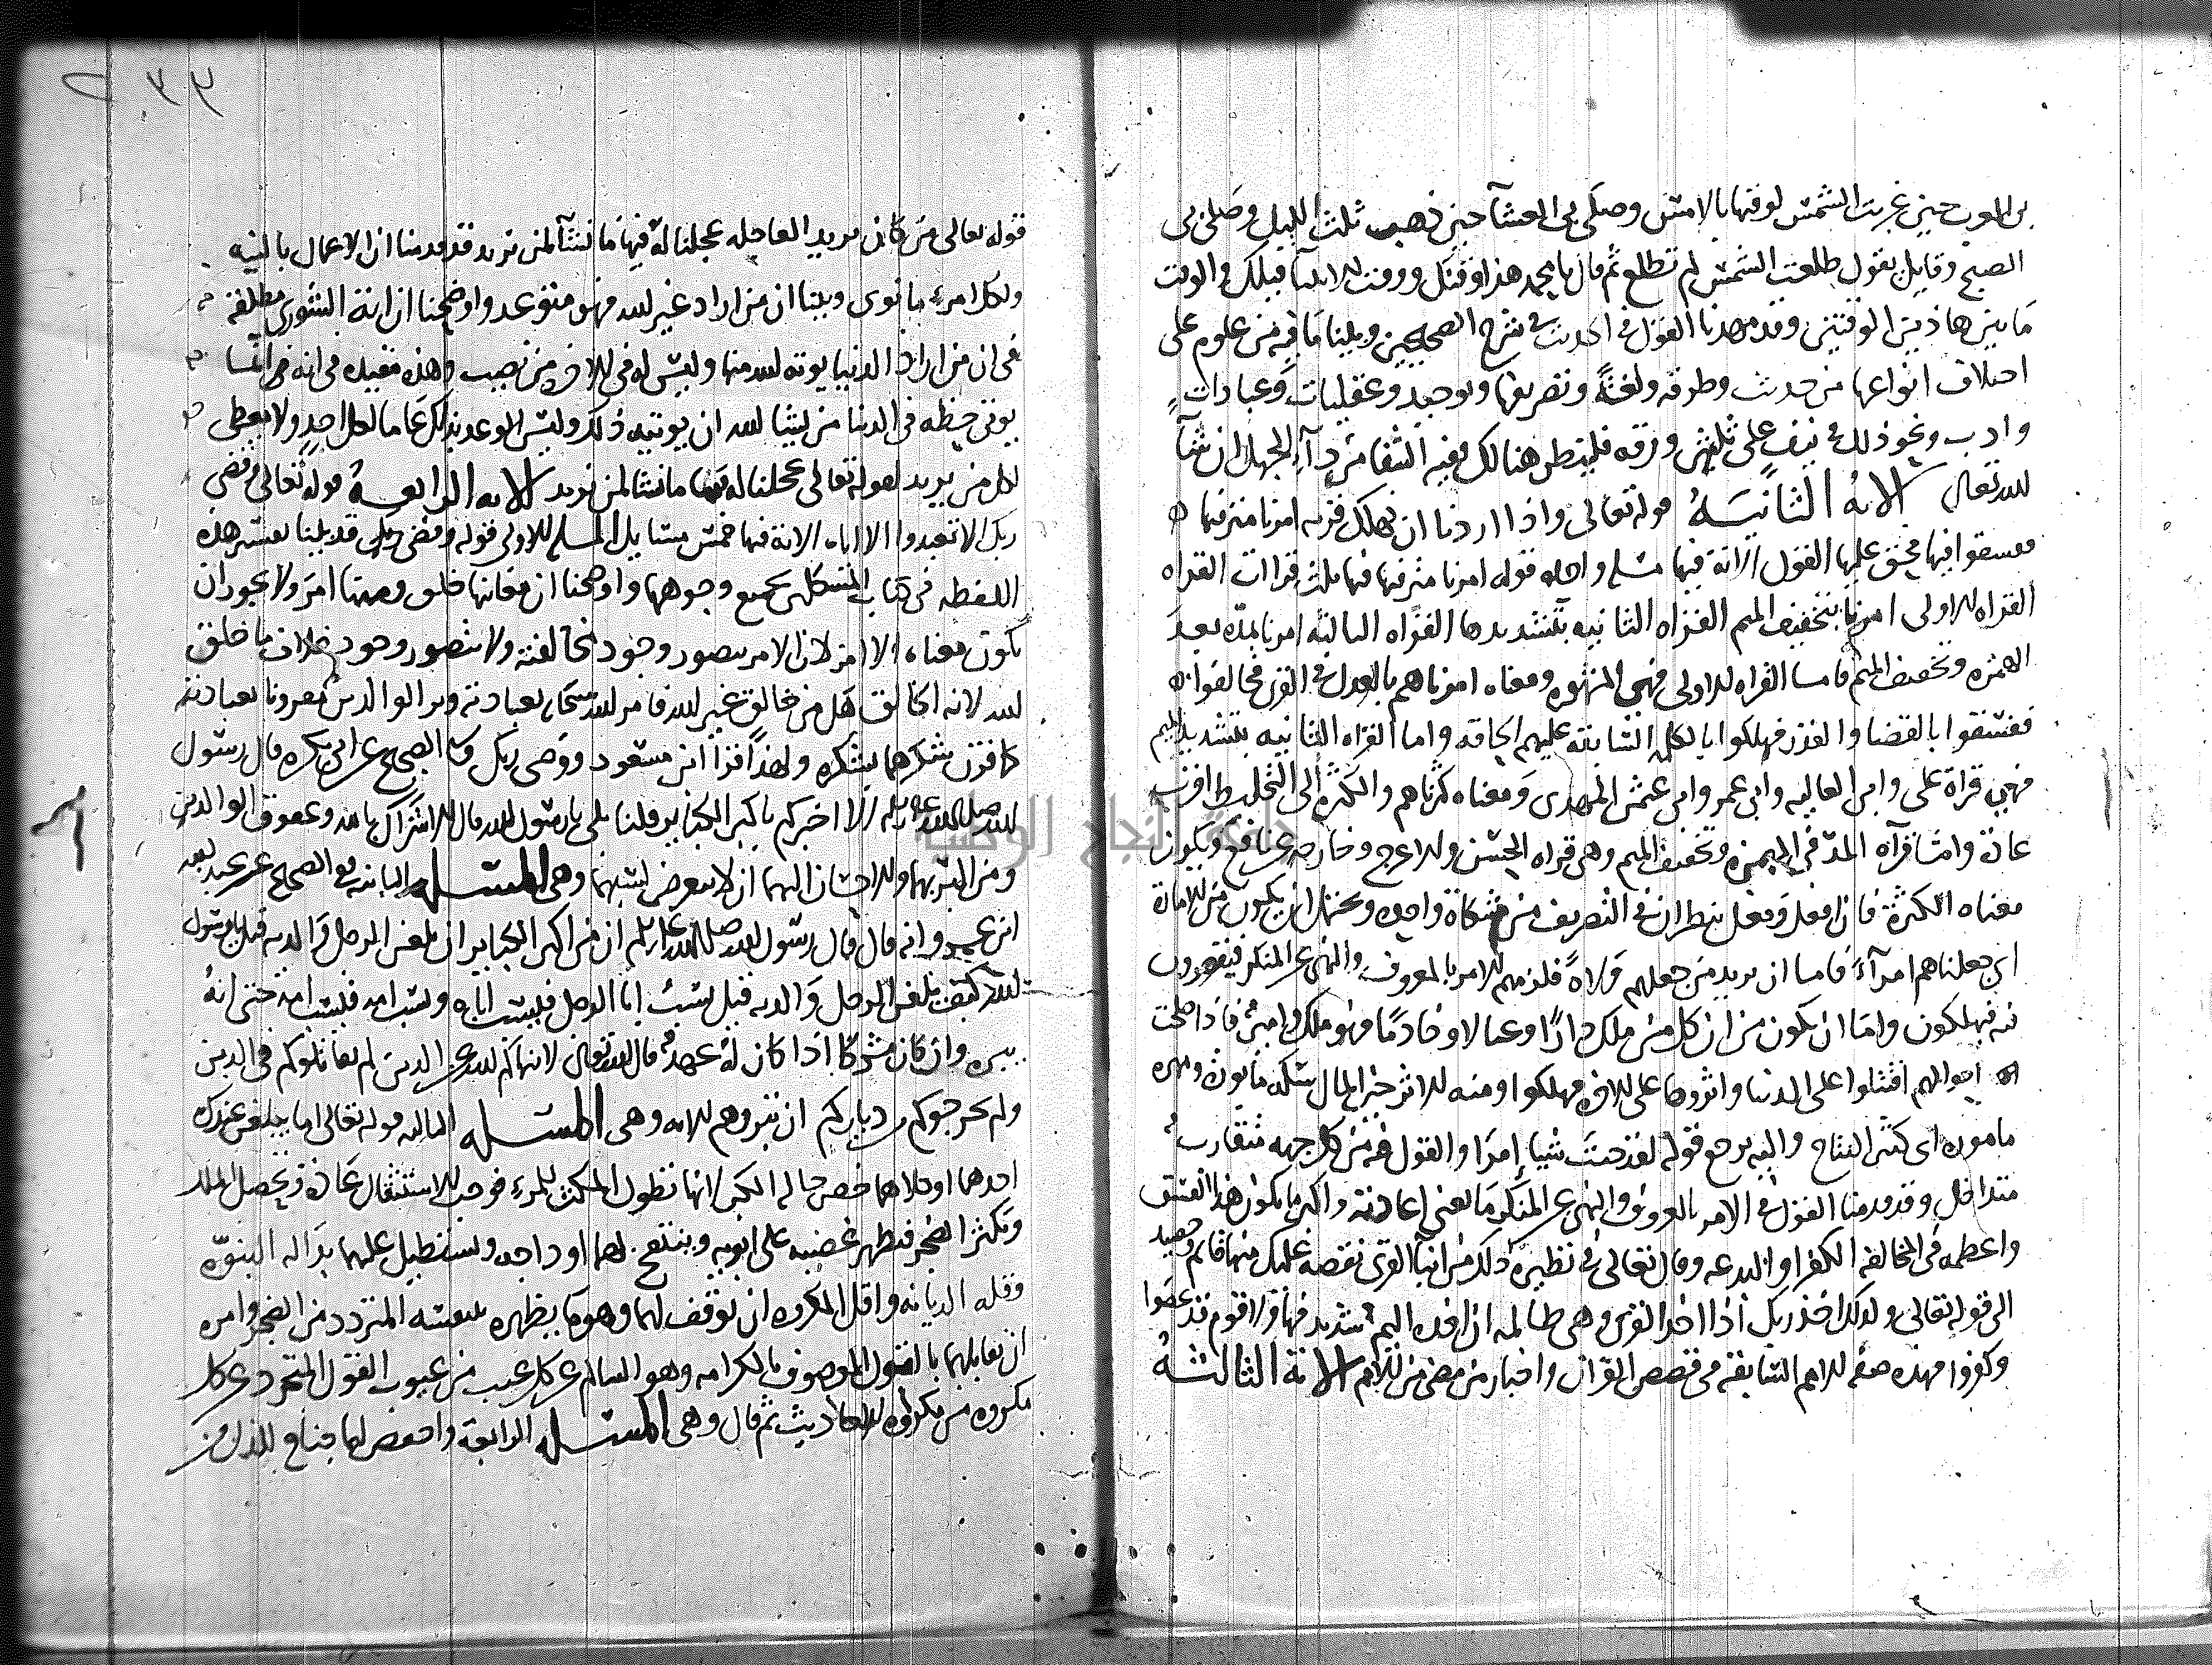 بى المغرب حين غربت الشمس لوقتها بالامس وصلى بى العشآ حين ذهب ثلث الليل وصلى بى
الصبح وقايل يقول طلعت الشمس لم تطلع ثم قال يا محمد هذا وقتك ووقت الانبيآ قبلك والوقت
ما بين هاذين الوقتين وقد مهدنا القول فى الحديث فى شرح الصحيحين وبينا ما فيه من علوم على
اختلاف انواعها من حديث وطرقه ولغة وتصريفها وتوحيد وعقليات وعبادات
وادب ونحو ذلك فى نيف على ثلثين ورقه فلينظر هنالك ففيه الشفا من دآء الجهل ان شآ
الله تعالى الاية الثانية قوله تعالى واذا اردنا ان نهلك قرية امرنا مترفيها
ففسقوا فيها فحق عليها القول الاية فيها مسله واحده قوله امرنا مترفيها فيها ثلث قراات القراه
القراه الاولى امرنا بتخفيف الميم القراه الثانيه بتشديدها القراه الثالثه امرنا بمدة بعد
الهمزه وتخفيف الميم فاما القراه الاولى فهى المشهوره ومعناه امرناهم بالعدل فخالفوا
ففسقوا بالقضا والقدر فهلكوا بالكلمه السابقه عليهم الحاقه واما القراه الثانيه بتشديد الميم
فهى قراة على وابى العاليه وابى عمرو وابى عثمن المهدى ومعناه كثرناهم والكثره الى التخليط اقرب
عادة واما قرآه المد فى الهمزه وتخفيف الميم وهى قراه الحسن والاعرج وخارجه عن نافع ويكون
معناه الكثرة فان افعل وفعل ينظران فى التصريف من مشكاة واحده ويحتمل ان يكون من الامارة
اى جعلناهم امرآء فاما ان يريد من جعلهم ولاة فلزمهم الامر بالمعروف والنهى عن المنكر فيقصرون
فيه فيهلكون واما ان يكون من ان كل من ملك دارا وعيالا وخادما فهو ملك وامير فاذا صلحت
احوالهم اقبلوا على الدنيا واثروها على الاخره فهلكوا ومنه الاثر خير المال سكه مابورة ومهره
مامورة اى كثير النتاج واليه يرجع قوله لقد جئت شيا إمرا والقول فيه من كل جهه متقارب
متداخل وقد قدمنا القول فى الامر بالمعروف والنهى عن المنكر بما يغنى عن اعادته واكثر ما يكون هذا الفسق
واعظمه فى المخالفه الكفر او البدعه وقال تعالى فى نظيره ذلك من انبآ القرى نقصه عليك منها قائم وحصيد
الى قوله تعالى وكذلك اخذ ربك اذا اخذ القرى وهى ظالمه ان اخذه اليم شديد فهاؤلا قوم قد عصوا
وكفروا فهذه صفه الامم السابقة فى قصص القران واخبار من مضى من الامم الاية الثالثة
٢٣٣
قوله تعالى من كان يريد العاجله عجلنا له فيها ما نشآ لمن نريد قد قدمنا ان الاعمال بالنيه
ولكل امرء ما نوى وبينا ان من اراد غير الله فهو متوعد واوضحنا ان اية الشورى مطلقة
فى ان من اراد الدنيا يوته الله منها وليس له فى الاخره من نصيب وهذه مقيده فى انه انما
يوتى حظه فى الدنيا من يشا الله ان يوتيه ذلك وليس الوعد بذلك عاما لكل احد ولا يعطى
لكل من يريد لقوله تعالى عجلنا له فيها ما نشا لمن نريد الايه الرابعة قوله تعالى وقضى
ربك الا تعبدوا الا اياه الاية فيها خمس مسايل المسله الاولى قوله وقضى ربك قد بينا تفسير هذه
اللفظه فى كتاب المشكلين بجميع وجوهها واوضحنا ان من معانيها خلق ومنها امر ولا يجوز ان
يكون معناه الا امر لان الامر يتصور وجود مخالفته ولا يتصور وجود خلاف ما خلق
الله لانه الخالق هل من خالق غير الله فامر الله سبحانه بعبادته وبر الوالدين مقرونا بعبادته
كما قرن شكرهما بشكره ولهذا قرا ابن مسعود ووصى ربك وفى الصحيح عن ابى بكره قال رسول
الله صلى الله عليه وسلم الا اخبركم باكبر الكباير قلنا بلى يا رسول الله قال الاشراك بالله وعقوق الوالدين
ومن البر بهما والاحسان اليهما ان لا يتعرض لسبهما وهى المسله الثانيه ففى الصحيح عن عبد الله
ابن عمرو انه قال قال رسول الله صلى الله عليه وسلم ان من اكبر الكباير ان يلعن الرجل والديه قيل يا رسول
الله كيف يلعن الرجل والديه قيل يسب ابا الرجل فيسب اباه ويسب امه فيسب امه حتى انه
يبره وان كان مشركا اذا كان له عهد قال الله تعالى لا ينهاكم الله عن الذين لم يقاتلوكم فى الدين
ولم يخرجوكم من دياركم ان تبروهم الايه وهى المسله الثالثه قوله تعالى اما يبلغن عندك
احدهما او كلاهما خص حاله الكبر لانها تطول المكث للمرء فوجب الاستثقال عادة ويحصل الملل
ويكثر الضجر فيظهر غضبه على ابويه وينتفخ لهما اوداجه ويستطيل عليهما بداله البنوة
وقله الديانه واقل المكروه ان يوفف لهما وهو ما يظهره بنفسه المتردد من الضجر وامره
ان يقابلهما بالقول الموصوف بالكرامه وهو السالم عن كل عيب من عيوب القول المتجرد عن كل
مكروه من مكروه الاحاديث ثم قال وهى المسله الرابعة واخفض لهما جناح الذل من